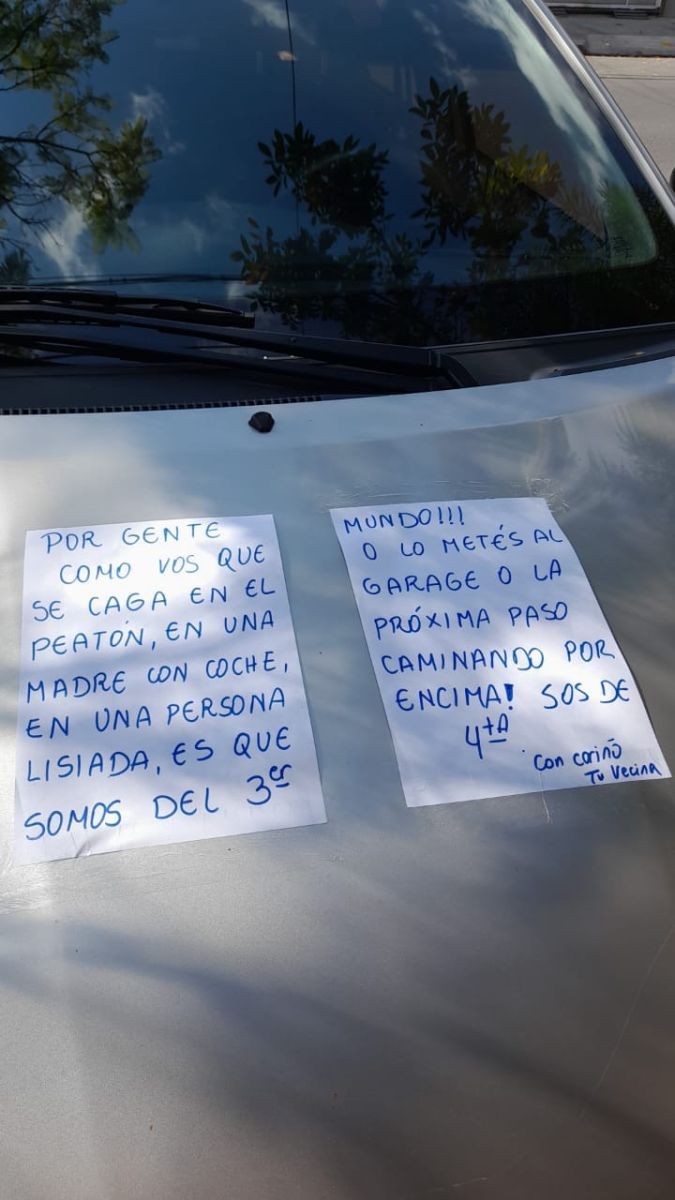 POR GENTE
COMO VOS QUE
SE CAGA EN EL
PEATÓN, EN UNA
MADRE CON COCHE,
EN UNA PERSONA
LISIADA, ES QUE
SOMOS DEL 3er
MUNDO!!!
O LO METÉS AL
GARAGE O LA
PRÓXIMA PASO
CAMINANDO POR
ENCIMA! SOS DE
4tA.
Con cariño
Tu Vecina